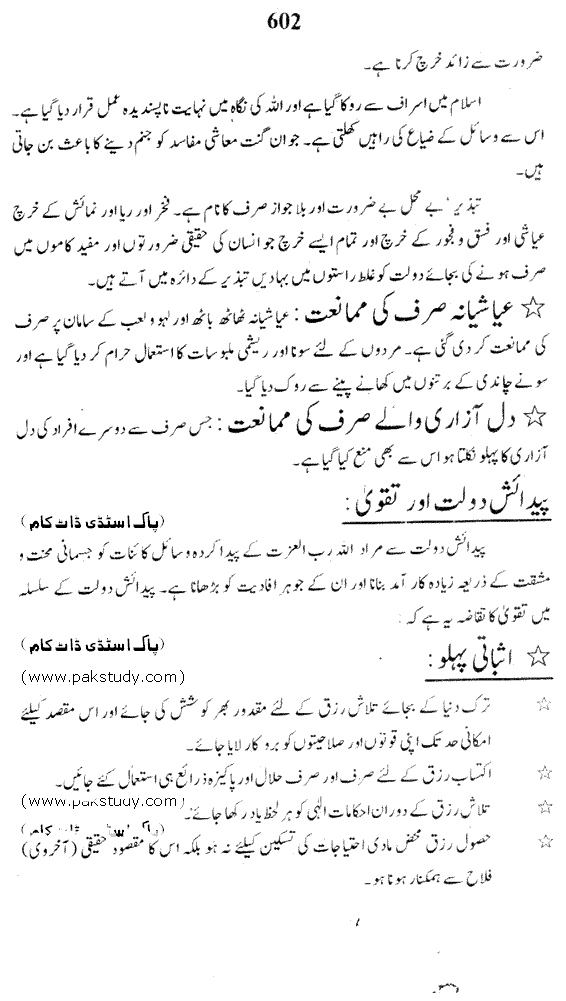 602
ضرورت سے زائد خرچ کرنا ہے۔
اسلام میں اسراف سے روکا گیا ہے اور اللہ کی نگاہ میں نہایت ناپسندیدہ عمل قرار دیا گیا ہے۔
اس سے وسائل کے ضیاع کی راہیں کھلتی ہے۔ جو ان گنت معاشی مفاسد کو جنم دینے کا باعث بن جاتی
ہیں۔
تبذیر ‘بے محل بے ضرورت اور بلا جواز صرف کا نام ہے۔ فخر اور ریا اور نمائش کے خرچ
عیاشی اور فسق و فجور کے خرچ اور تمام ایسے خرچ جو انسان کی حقیقی ضرورتوں اور مفید کاموں میں
صرف ہونے کی بجائے دولت کو غلط راستوں میں بہادیں تبذیر کے دائرہ میں آتے ہیں۔
☆ عیاشیانہ صرف کی ممانعت : عیاشیانہ ٹھاٹھ باٹھ اور لہو و لعب کے سامان پر صرف
کی ممانعت کر دی گئی ہے۔ مردوں کے لئے سونا اور ریشمی ملبوسات کا استعمال حرام کر دیا گیا ہے اور
سونے چاندی کے برتنوں میں کھانے پینے سے روک دیا گیا۔
☆ دل آزاری والے صرف کی ممانعت : جس صرف سے دوسرے افراد کی دل
آزاری کا پہلو نکلتا ہو اس سے بھی منع کیا گیا ہے۔
پیدائش دولت اور تقویٰ :
(پاک اسٹڈی ڈاٹ کام)
پیدائش دولت سے مراد اللہ رب العزت کے پیدا کردہ وسائل کائنات کو جسمانی محنت و
مشقت کے ذریعہ زیادہ کار آمد بنانا اور ان کے جوہر افادیت کو بڑھانا ہے۔ پیدائش دولت کے سلسلہ
میں تقویٰ کا تقاضہ یہ ہے کہ :
(پاک اسٹڈی ڈاٹ کام)
☆ اثباتی پہلو :
(www.pakstudy.com)
☆ ترک دنیا کے بجائے تلاش رزق کے لئے مقدور بھر کوشش کی جائے اور اس مقصد کیلئے
امکانی حد تک اپنی قوتوں اور صلاحیتوں کو بروکار لایا جائے۔
☆ اکتساب رزق کے لئے صرف اور صرف حلال اور پاکیزہ ذرائع ہی استعمال کئے جائیں۔
(www.pakstudy.com)
☆ تلاش رزق کے دوران احکامات الٰہی کو ہر لحظ یاد رکھا جائے۔
(پاک اسٹڈی ڈاٹ کام)
☆ حصول رزق محض مادی احتیاجات کی تسکین کیلئے نہ ہو بلکہ اس کا مقصود حقیقی (آخروی)
فلاح سے ہمکنار ہونا ہو۔